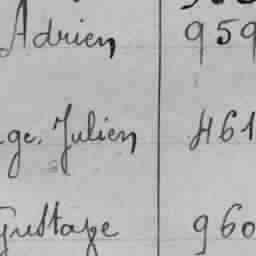 Adrien 959
ge. Julien 461
Gustave 960